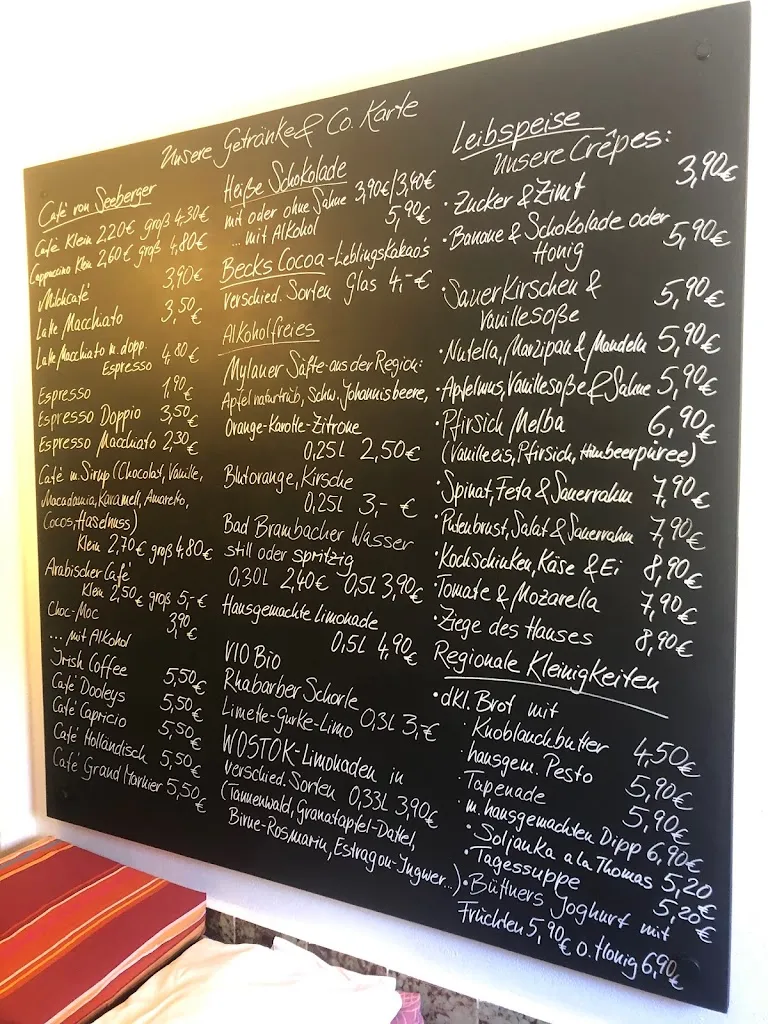 Unsere Getränke & Co. Karte
Café von Seeberger
Café Klein 2,20€ groß 4,30€
Cappuccino Klein 2,60€ groß 4,80€
Milchcafé 3,90€
Latte Macchiato 3,50€
Latte Macchiato m. dopp.
Espresso 4,80€
Espresso 1,90€
Espresso Doppio 3,50€
Espresso Macchiato 2,30€
Café m. Sirup (Chocolat, Vanille,
Macadamia, Karamell, Amaretto,
Cocos, Haselnuss)
Klein 2,70€ groß 4,80€
Arabischer Café
Klein 2,50€ groß 5,-€
Choc-Moc 3,90€
... mit Alkohol
Irish Coffee 5,50€
Café Dooleys 5,50€
Café Capricio 5,50€
Café Holländisch 5,50€
Café Grand Marnier 5,50€
Heiße Schokolade
mit oder ohne Sahne 3,90€/3,40€
... mit Alkohol 5,90€
Becks Cocoa-Leblingskakao's
verschied. Sorten Glas 4,-€
Alkoholfreies
Mylauer Säfte aus der Region:
Apfel naturtrüb, Schw. Johannisbeere,
Orange-Karotte-Zitrone
0,25L 2,50€
Blutorange, Kirsche
0,25L 3,- €
Bad Brambacher Wasser
still oder spritzig
0,30L 2,40€ 0,5L 3,90€
Hausgemachte Limonade
0,5L 4,90€
VIO Bio
Rhabarber Schorle
Limette-Gurke-Limo 0,3L 3,-€
WOSTOK-Limonaden in
verschied. Sorten 0,33L 3,90€
(Tannenwald, Granatapfel-Dattel,
Birne-Rosmarin, Estragon-Ingwer...)
Leibspeise
Unsere Crêpes:
· Zucker & Zimt 3,90€
· Banane & Schokolade oder
Honig 5,90€
· Sauerkirschen &
Vanillesoße 5,90€
· Nutella, Marzipan & Mandeln 5,90€
· Apfelmus, Vanillesoße & Sahne 5,90€
· Pfirsich Melba 6,90€
(Vanilleeis, Pfirsich, Himbeerpüree)
· Spinat, Feta & Sauerrahm 7,90€
· Putenbrust, Salat & Sauerrahm 7,90€
· Kochschinken, Käse & Ei 8,90€
· Tomate & Mozarella 7,90€
· Ziege des Hauses 8,90€
Regionale Kleinigkeiten
· dkl. Brot mit
· Knoblauchbutter 4,50€
· hausgem. Pesto 5,90€
· Tapenade 5,90€
· m. hausgemachten Dipp 6,90€
· Soljanka a la Thomas 5,20
· Tagessuppe 5,20€
· Büttners Joghurt mit €
Früchten 5,90€ o. Honig 6,90€